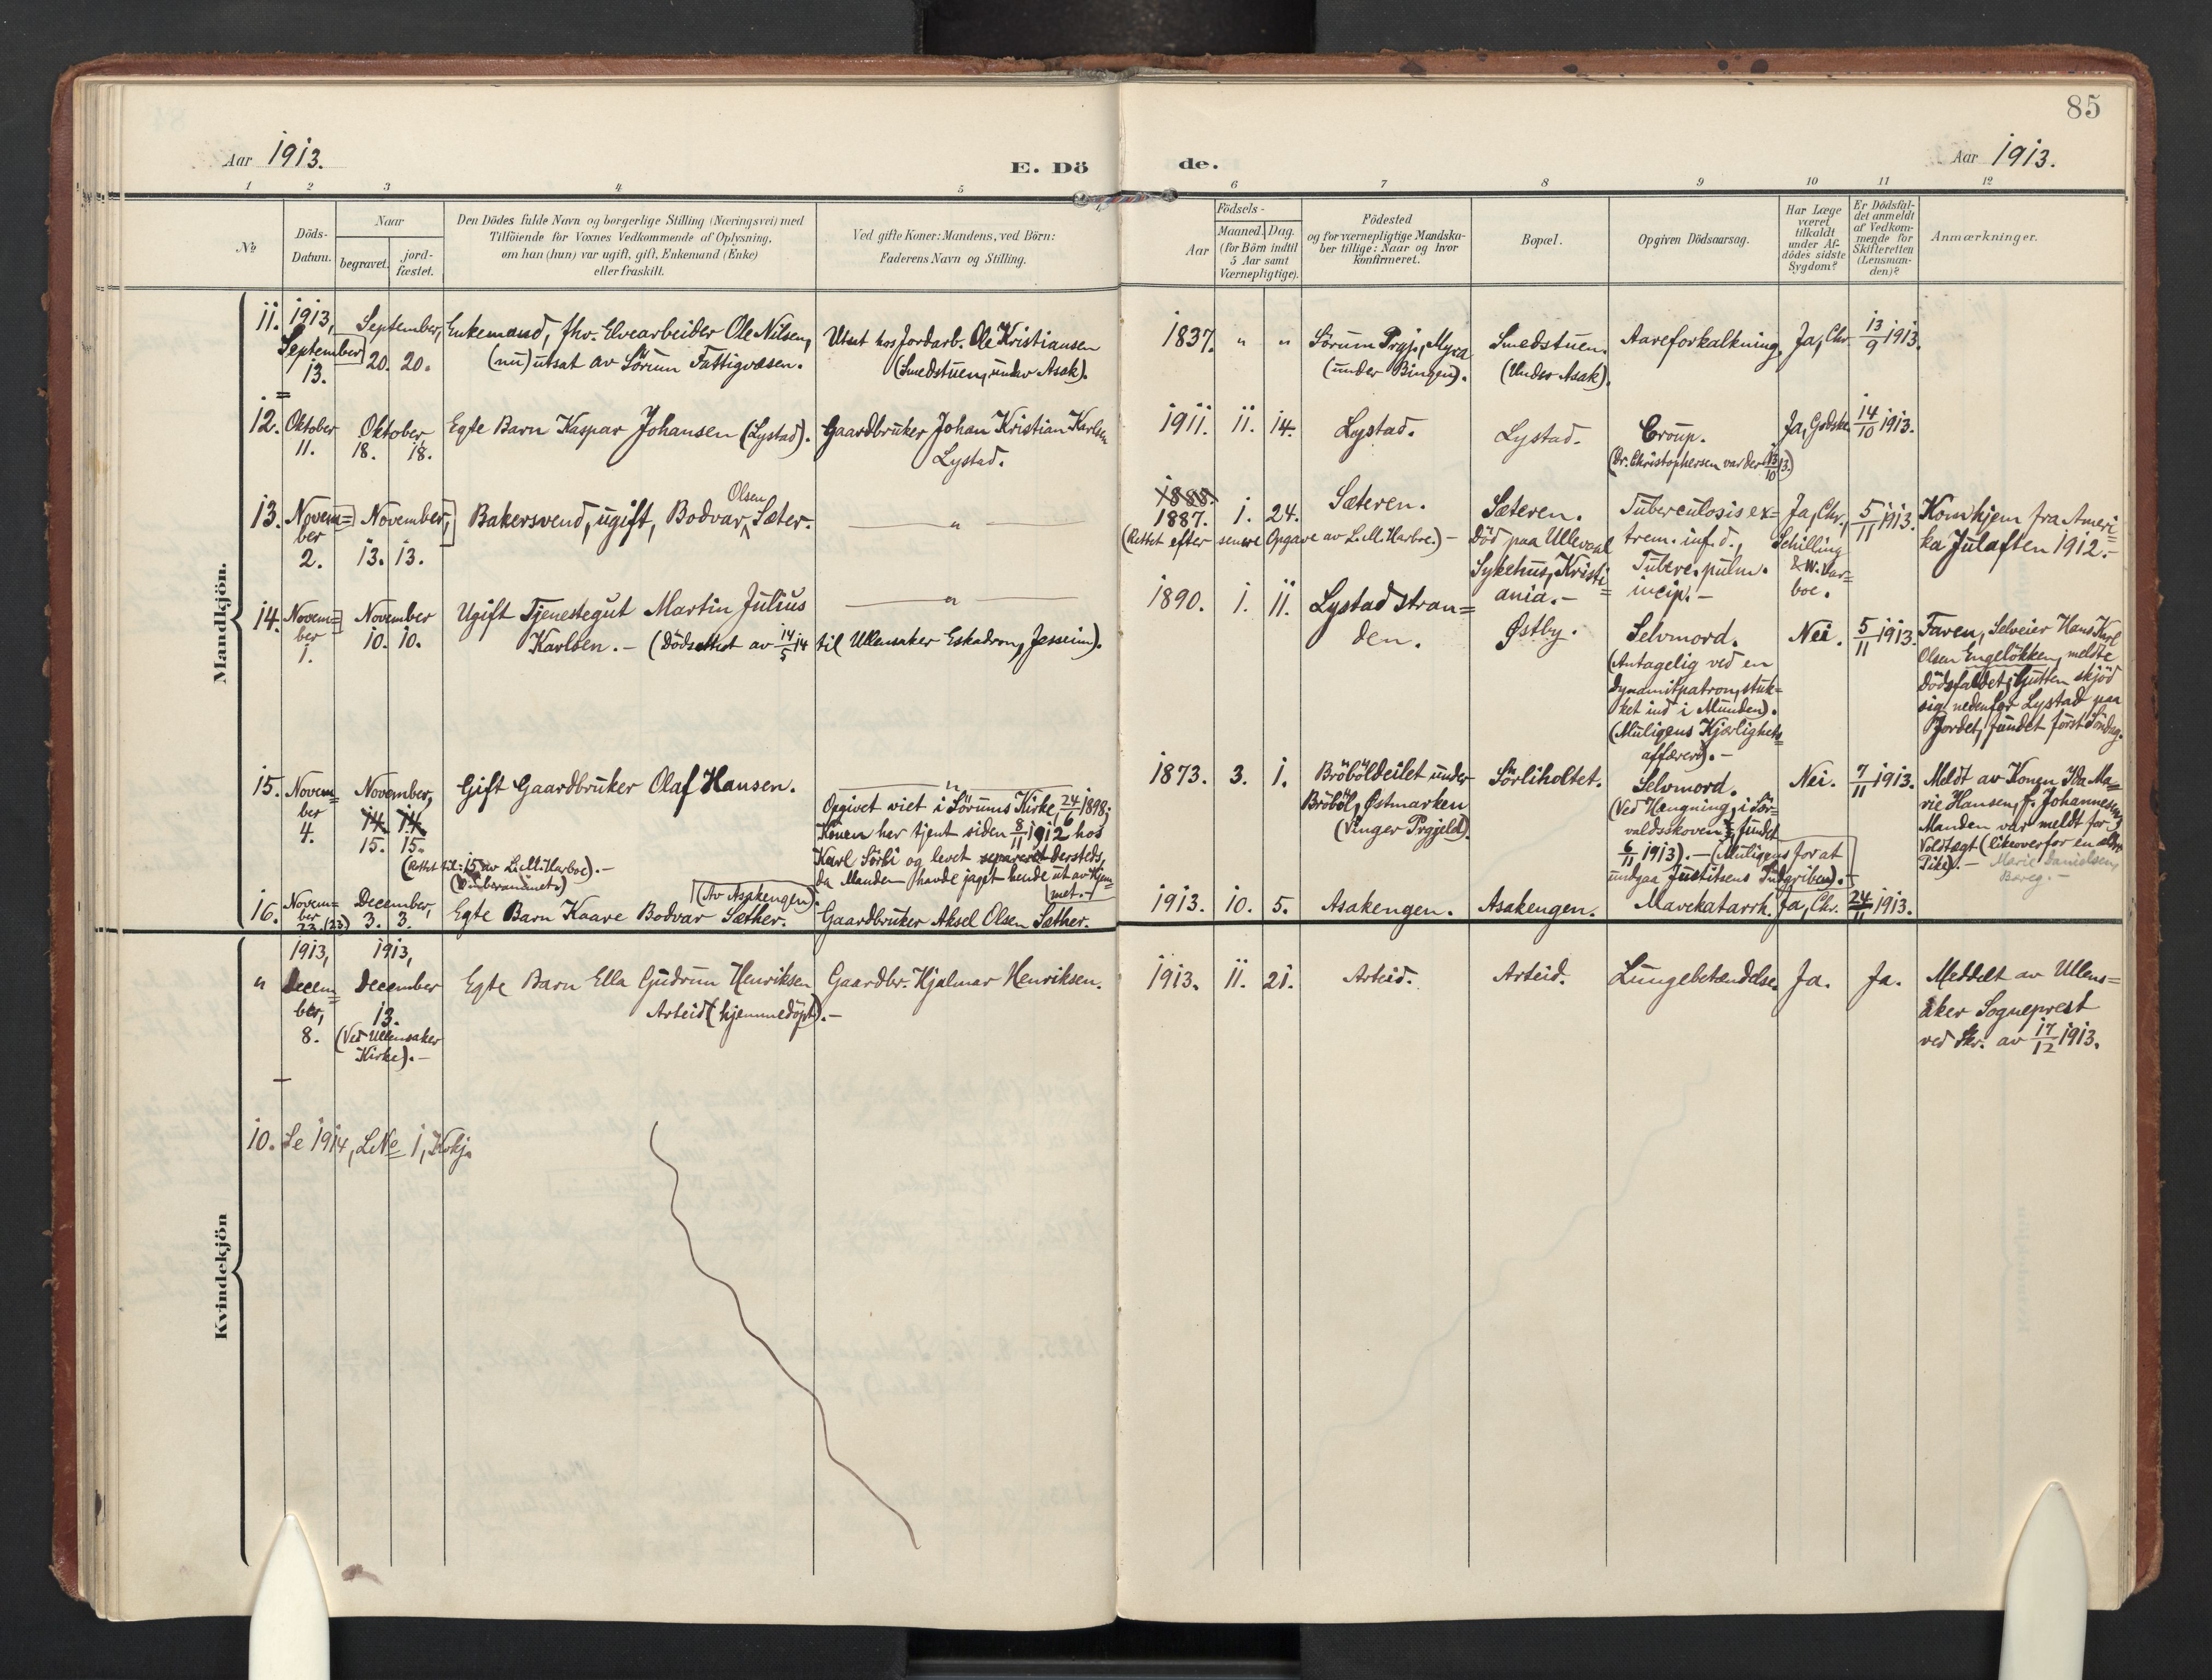 85
Aar 1913.
E. Dö
de.
Aar 1913.
1 2 3 4 5 6 7 8 9 10 11 12
No
Döds-
Datum.
Naar
begravet.
jord-
fæstet.
Den Dödes fulde Navn og borgerlige Stilling (Næringsvei) med
Tilföiende for Voxnes Vedkommende af Oplysning,
om han (hun) var ugift, gift, Enkemand (Enke)
eller fraskilt.
Ved gifte Koner: Mandens, ved Börn:
Faderens Navn og Stilling.
Födsels-
Aar
Maaned.
Dag.
(for Börn indtil
5 Aar samt
Værnepligtige).
Födested
og for værnepligtige Mandska-
ber tillige: Naar og hvor
konfirmeret.
Bopæl.
Opgiven Dödsaarsag.
Har Læge
været
tilkaldt
under Af-
dödes sidste
Sygdom?
Er Dödsfal-
det anmeldt
af Vedkom-
mende for
Skifteretten
(Lensman-
den)?
Anmærkninger.
Mandkjön.
11.
1913,
September
13.
September,
20. 20.
Enkemand, fhv. Elvearbeider Ole Nilsen,
(nu) utsat av Sörum Fattigvæsen.
Utsat hos Jordarb. Ole Kristiansen
(Smedstuen, under Asak).
1837. " "
Sörum Prgj., Myra
(under Bingen).
Smedstuen.
(Under Asak).
Aareforkalkning.
Ja, Chr.
13/9 1913.
12.
Oktober
11.
Oktober
18. 18.
Egte Barn Kaspar Johansen (Lystad).
Gaardbruker Johan Kristian Karlsen
Lystad.
1911. 11. 14.
Lystad.
Lystad.
Croup.
(Dr. Christophersen var der 13/10 13.)
Ja, Godske.
14/10 1913.
13.
Novem=
ber
2.
November,
13. 13.
Olsen
Bakersvend, ugift, Bodvar Sæter.
"
1888.
1887. 1. 24.
(Rettet efter senere Opgave av L. M. Harboe.) -
Sæteren.
Sæteren.
Död paa Ullevaal
Sykehus, Kristi=
ania. -
Tuberculosis ex=
trem. inf. d.,
Tuberc. pulm.
incip. -
Ja, Chr.,
Schilling
& W. Har=
boe.
5/11 1913.
Kom hjem fra Ameri=
ka Julaften 1912. -
14.
Novem=
ber
1.
November
10. 10.
Ugift Tjenestegut Martin Julius
Karlsen. - (Dödsattest av 14/5 14 til Ullensaker Eskadron, Jesseim).
"
1890. 1. 11.
Lystadstran=
den.
Østby.
Selvmord.
(Antagelig ved en
Dynamitpatron, stuk=
ket ind i Munden).
(Muligens Kjærligheds=
affærer). -
Nei.
5/11 1913.
Faren, Selveier Hans Karl
Olsen Engelökken, meldte
Dödsfaldet; Gutten skjöd
sig nedenfor Lystad paa
Jordet, fundet först Söndag.
15.
Novem=
ber
4.
November,
14. 14.
15. 15.
(Rettet til: 15 av L. M. Harboe). -
Gift Gaardbruker Olaf Hansen.
"
Opgivet viet i Sörums Kirke, 24/6 1898;
Konen har tjent siden 8/11 1912 hos
Karl Sörli og levet separeret dersteds,
da Manden havde jaget hende ut av Hjem=
met. -
1873. 3. 1.
Bröböldeilet under
Bröböl, Østmarken
(Vinger Prgjeld).
Sörliholtet.
Selvmord.
(Ved Hængning, i Sör=
valdsskoven, fundet
6/11 1913). - (Muligens for at
undgaa Justitsens Indgriben). -
Nei.
7/11 1913.
Meldt av Konen Ida Ma=
rie Hansen, f. Johannesen,
Manden var meldt for
Voldtægt (likeoverfor en ældre
Pike). - Marie Danielsen,
Bareg. -
16.
Novem=
ber
23. (23)
December,
3. 3.
(Av Asakengen).
Egte Barn Kaare Bodvar Sæther.
Gaardbruker Aksel Olsen Sæther.
1913. 10. 5.
Asakengen.
Asakengen.
Mavekatarrh.
Ja, Chr.
24/11 1913.
Kvindekjön
"
1913,
Decem=
ber,
8.
1913,
December
13.
(Ved Ullensaker
Kirke). -
Egte Barn Ella Gudrun Henriksen
Arteid (hjemmedöpt). -
Gaardbr. Hjalmar Henriksen.
1913. 11. 21.
Arteid.
Arteid.
Lungebetændelse.
Ja.
Ja.
Meddelt av Ullens=
aker Sogneprest
ved Skr. av 17/12 1913.
10. Se 1914, LNo 1, Kvkj.